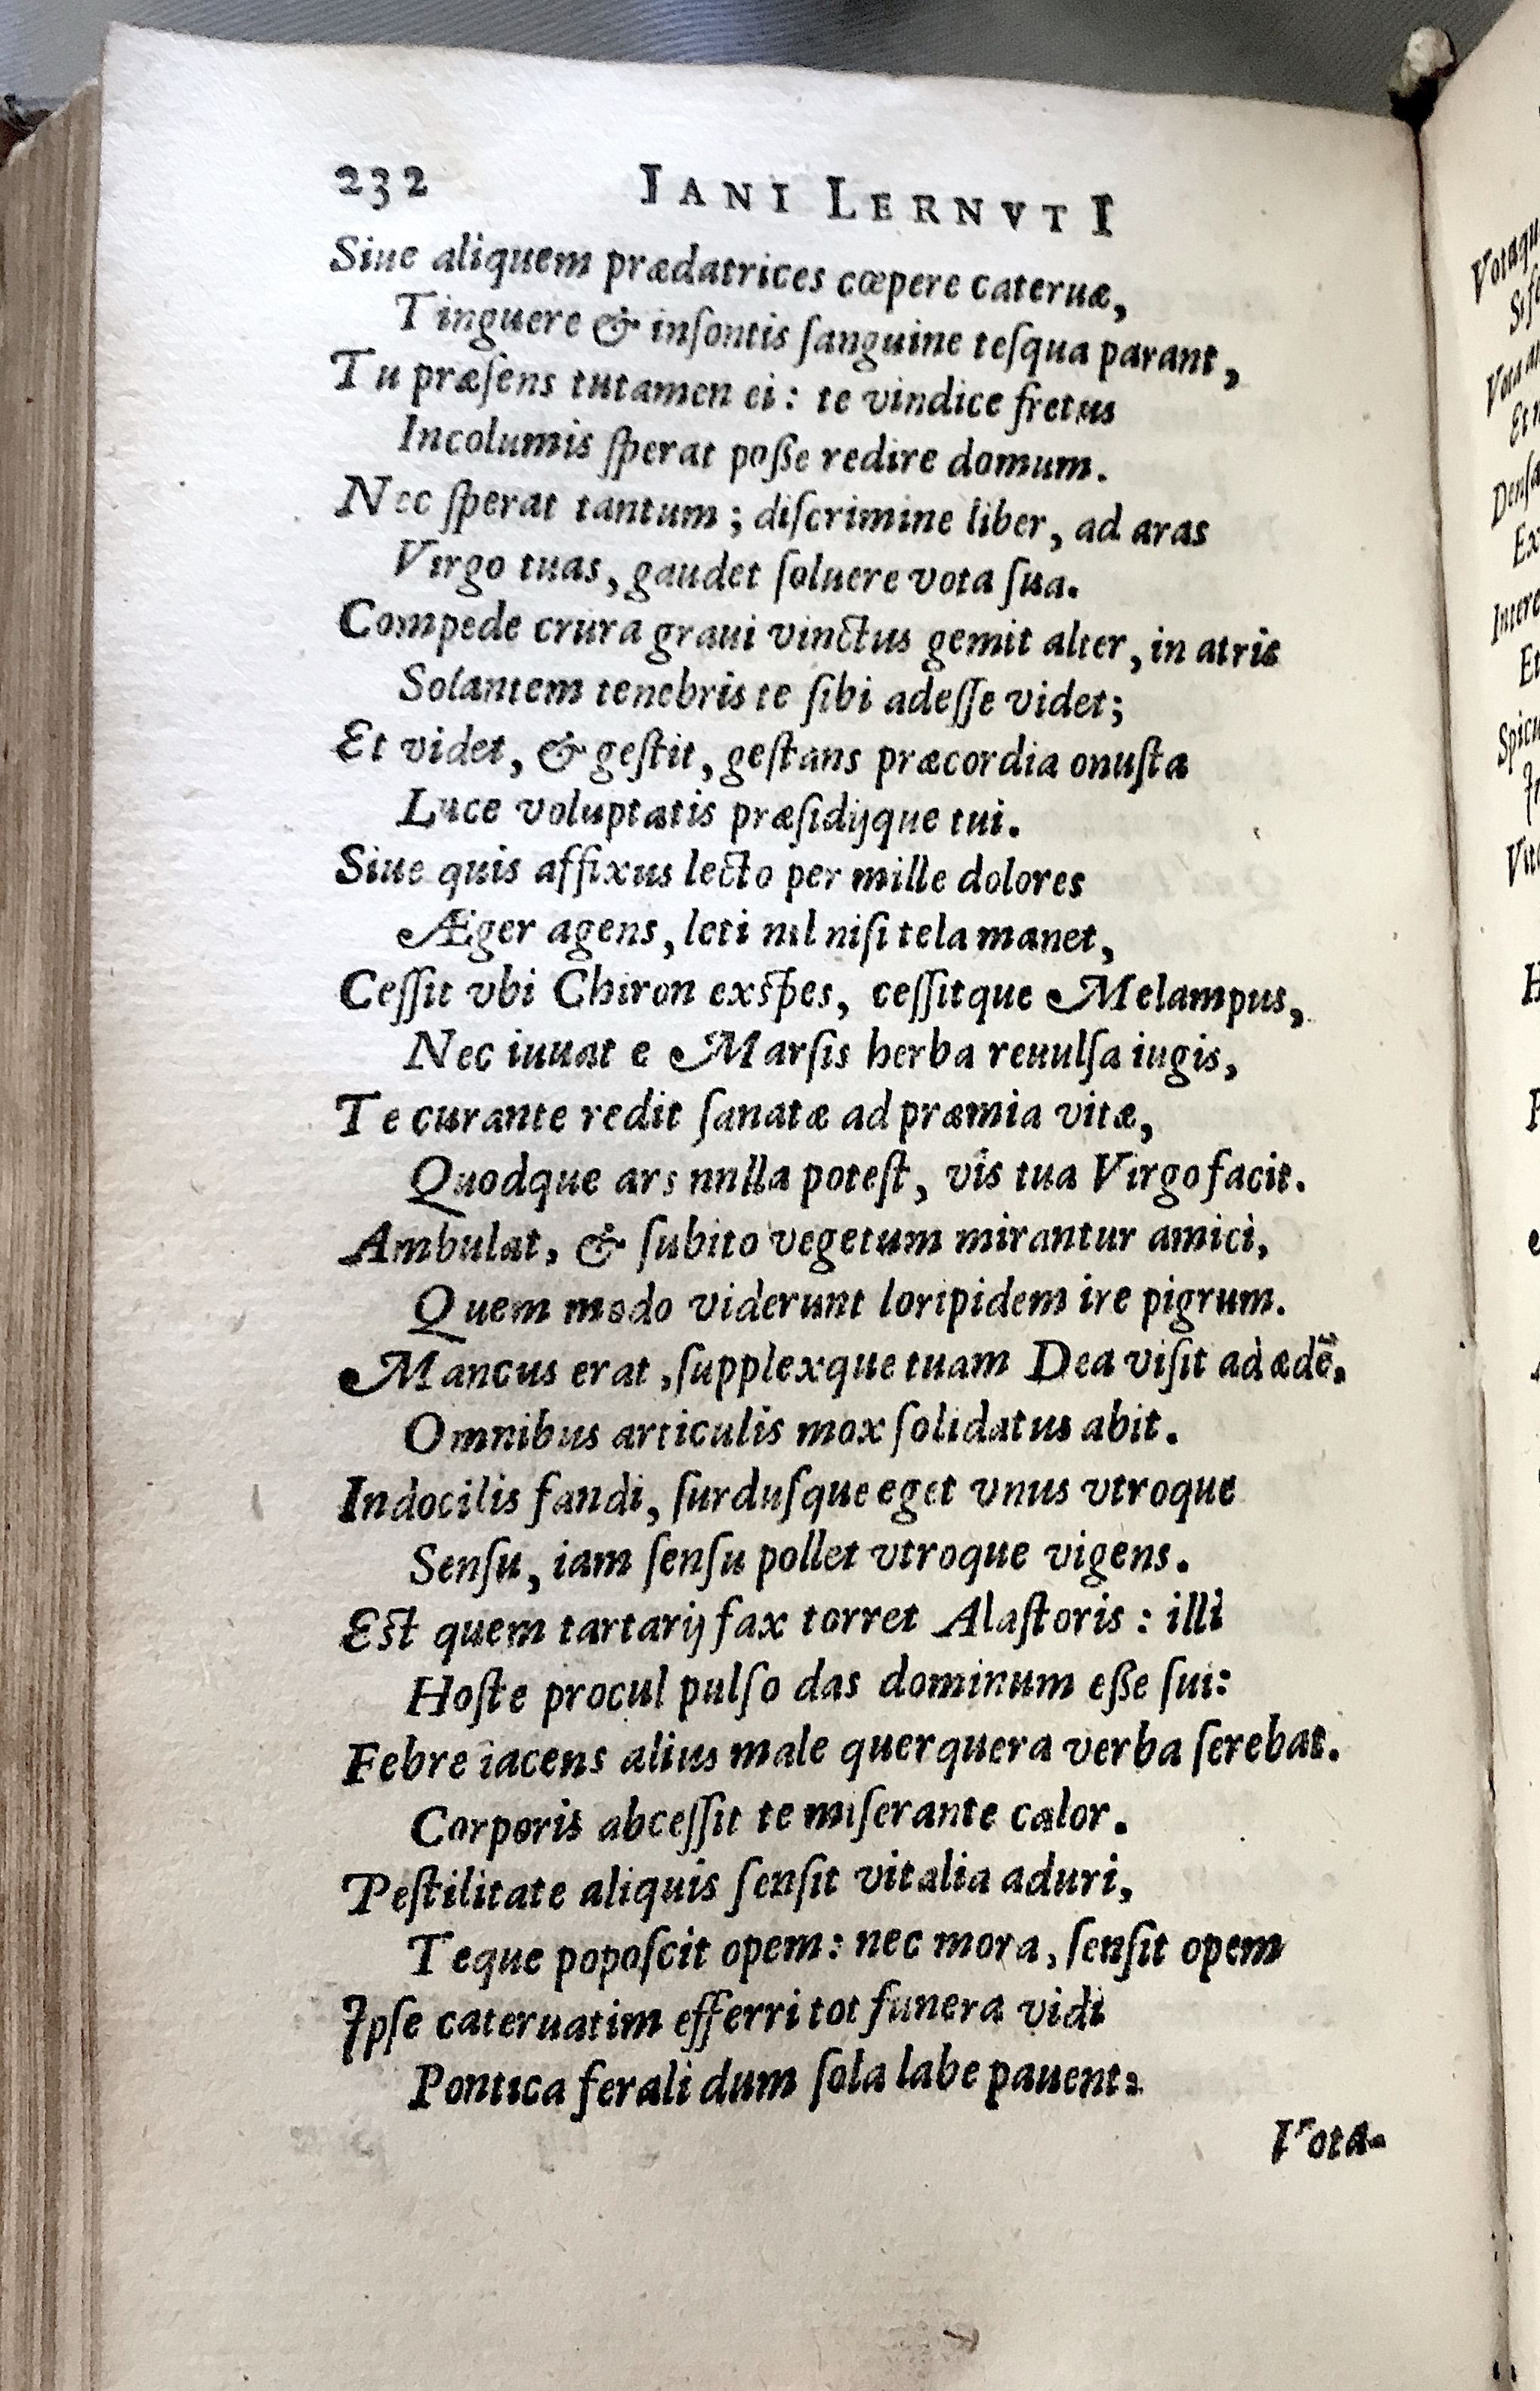 232 IANI LERNVTI
Siue aliquem prædatrices cœpere cateruæ,
Tinguere & inſontis ſanguine teſqua parant,
Tu præſens tutamen ei: te vindice fretus
Incolumis ſperat poße redire domum.
Nec ſperat tantum; diſcrimine liber, ad aras
Virgo tuas, gaudet ſoluere vota ſua.
Compede crura graui vinctus gemit alter, in atris
Solantem tenebris te ſibi adeſſe videt;
Et videt, & geſtit, geſtans præcordia onuſta
Luce voluptatis præſidijque tui.
Siue quis affixus lecto per mille dolores
Æger agens, leti nil niſi tela manet,
Ceſſit vbi Chiron exſpes, ceſſitque Melampus,
Nec iuuat e Marſis herba reuulſa iugis,
Te curante redit ſanatæ ad præmia vitæ,
Quodque ars nnlla poteſt, vis tua Virgo facit.
Ambulat, & ſubito vegetum mirantur amici,
Quem modo viderunt loripidem ire pigrum.
Mancus erat, ſupplexque tuam Dea viſit ad ædẽ,
Omnibus articulis mox ſolidatus abit.
Indocilis fandi, ſurduſque eget vnus vtroque
Senſu, iam ſenſu pollet vtroque vigens.
Eſt quem tartarij fax torret Alaſtoris: illi
Hoſte procul pulſo das dominum eße ſui:
Febre iacens alius male querquera verba ſerebat.
Corporis abceſſit te miſerante calor.
Peſtilitate aliquis ſenſit vitalia aduri,
Teque popoſcit opem: nec mora, ſenſit opem
Ipſe cateruatim efferri tot funera vidi
Pontica ferali dum ſola labe pauent:
Vota-